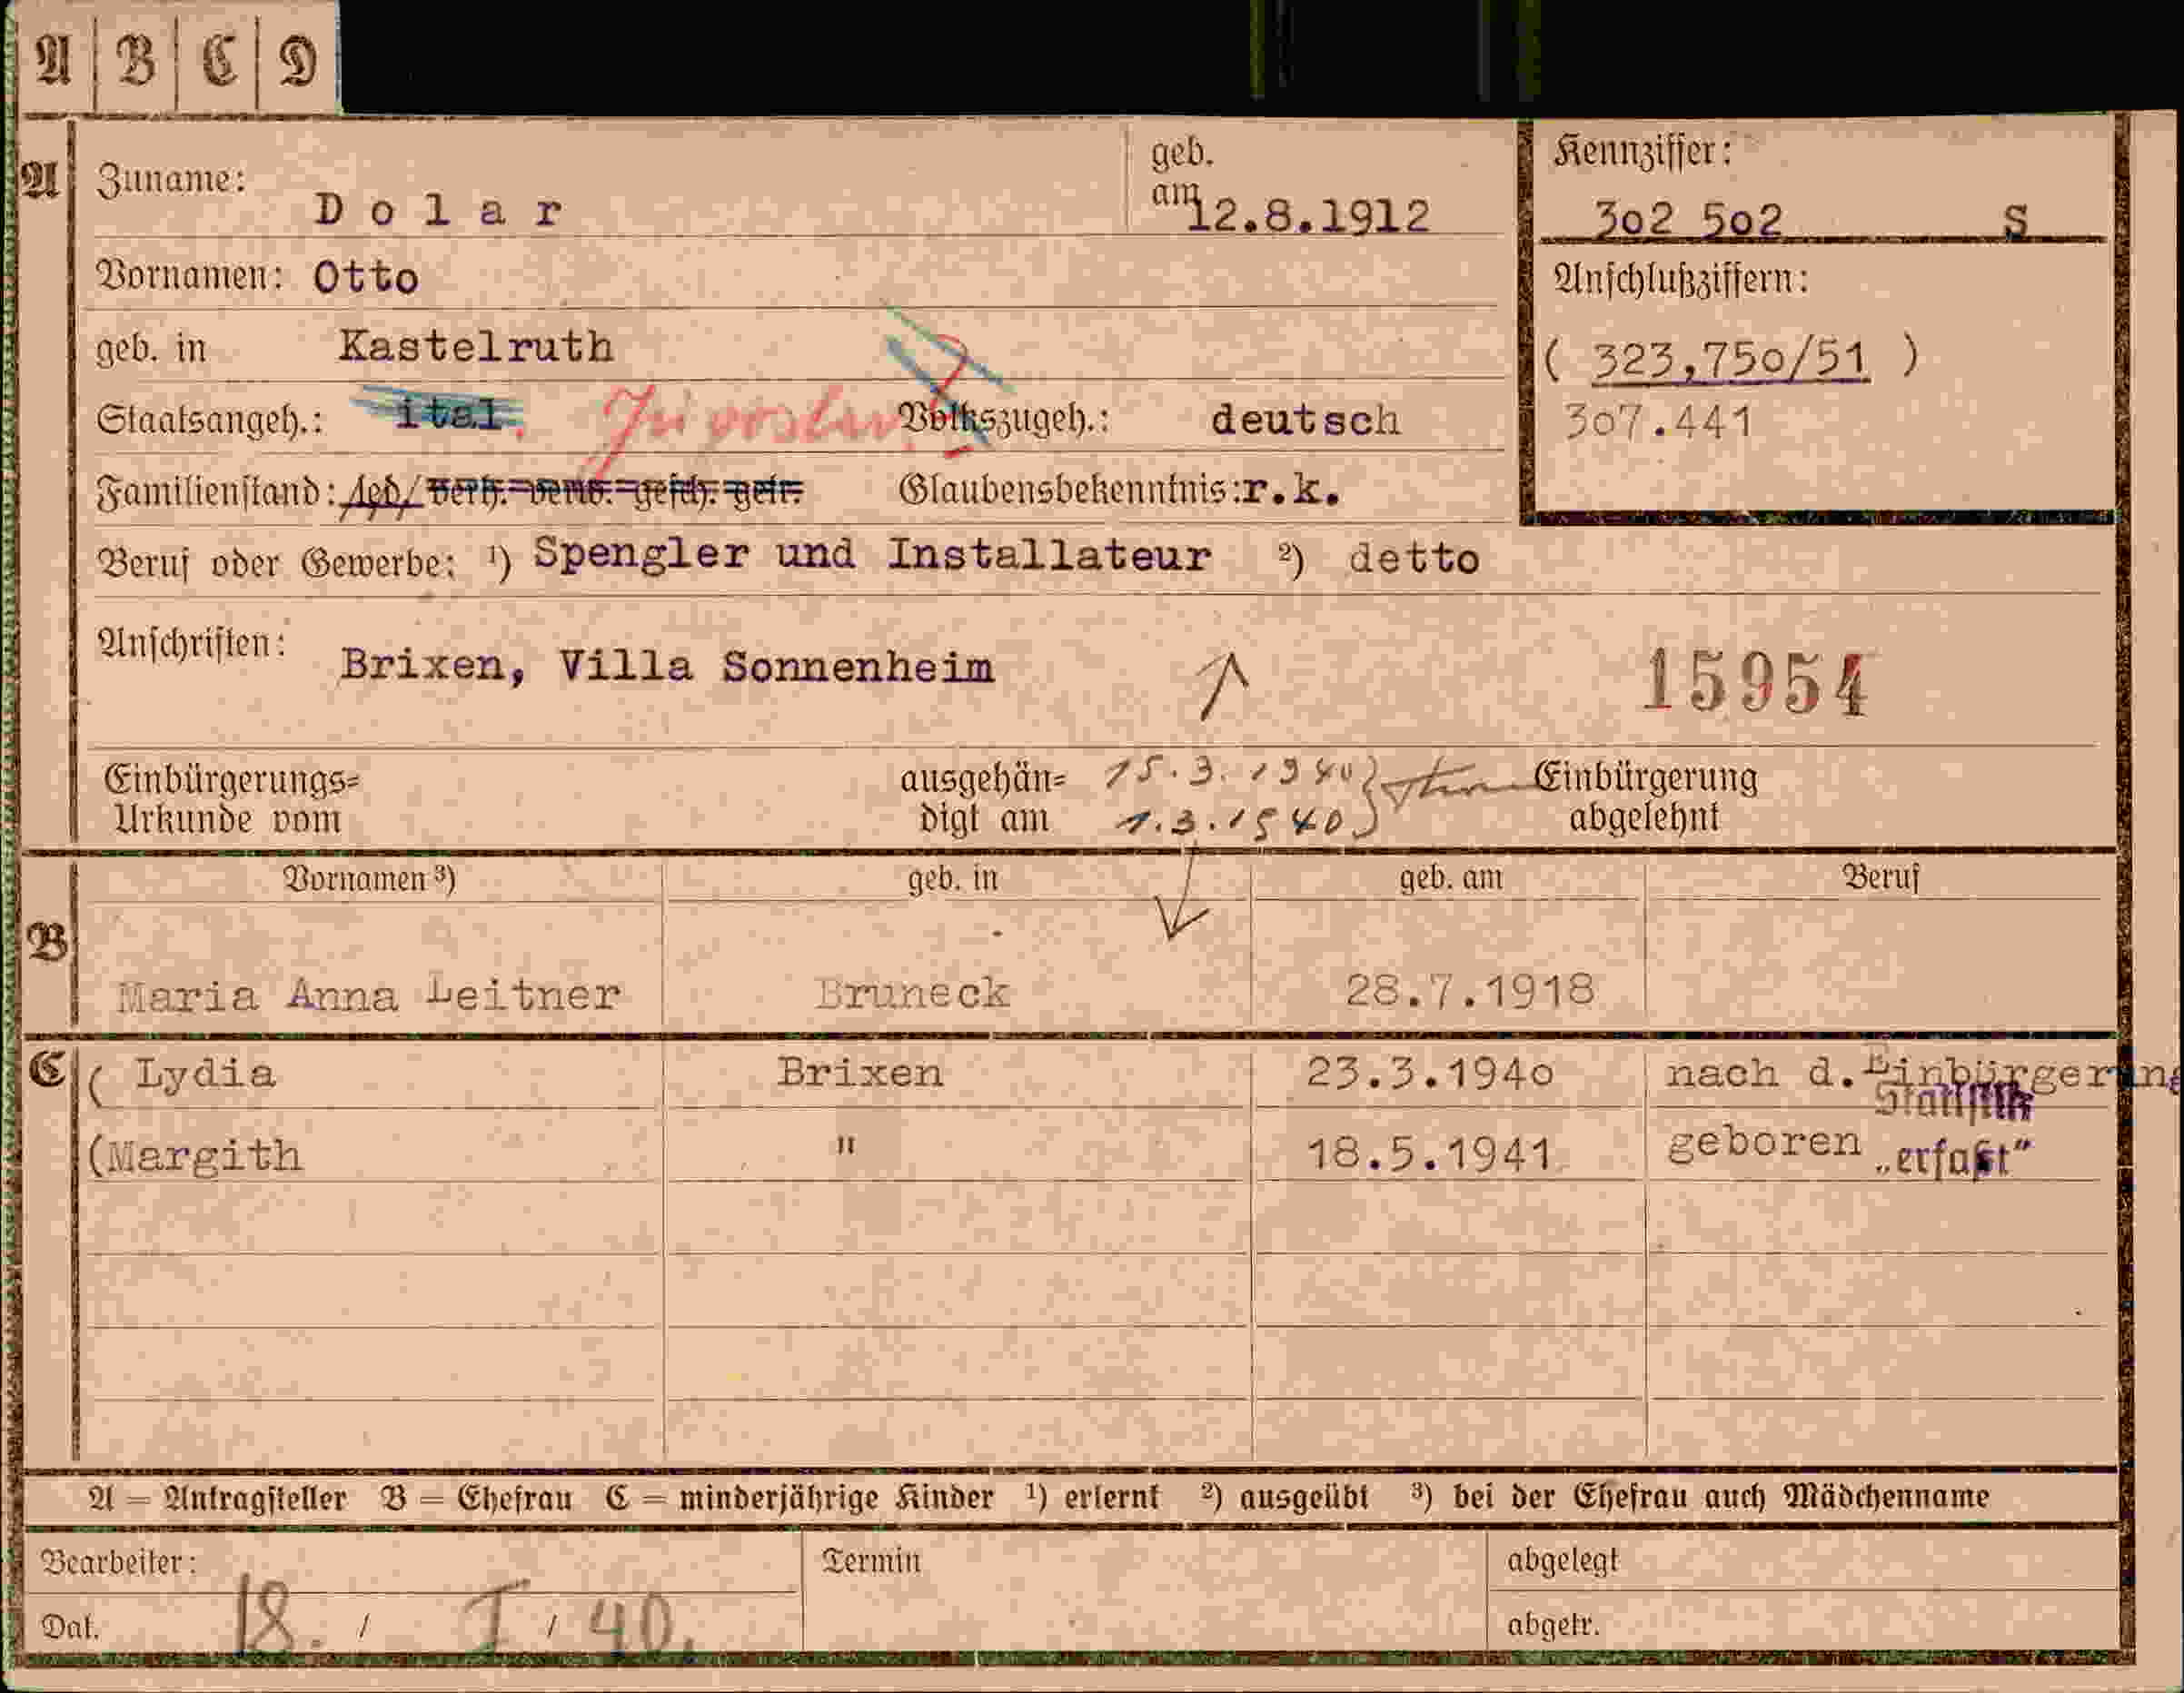 A B C D
A Zuname: Dolar geb. am 12.8.1912
Kennziffer:
302 502 S
Vornamen: Otto
Anschlußziffern:
geb. in Kastelruth
( 323,750/51 )
Staatsangeh.: ital. Volkszugeh.: deutsch
307.441
Familienstand: led. verh. verw. gesch. getr. Glaubensbekenntnis: r.k.
Beruf oder Gewerbe: ¹) Spengler und Installateur ²) detto
Anschriften: Brixen, Villa Sonnenheim
15954
Einbürgerungs= ausgehän= 15.3.1940 Einbürgerung
Urkunde vom digt am 1.3.1940 abgelehnt
Vornamen ³) geb. in geb. am Beruf
B Maria Anna Leitner Bruneck 28.7.1918
C ( Lydia Brixen 23.3.1940 nach d. Einbürgerung
Statistik
(Margith " 18.5.1941 geboren „erfaßt“
A = Antragsteller B = Ehefrau C = minderjährige Kinder ¹) erlernt ²) ausgeübt ³) bei der Ehefrau auch Mädchenname
Bearbeiter: Termin abgelegt
Dat. 18. / I / 40. abgetr.